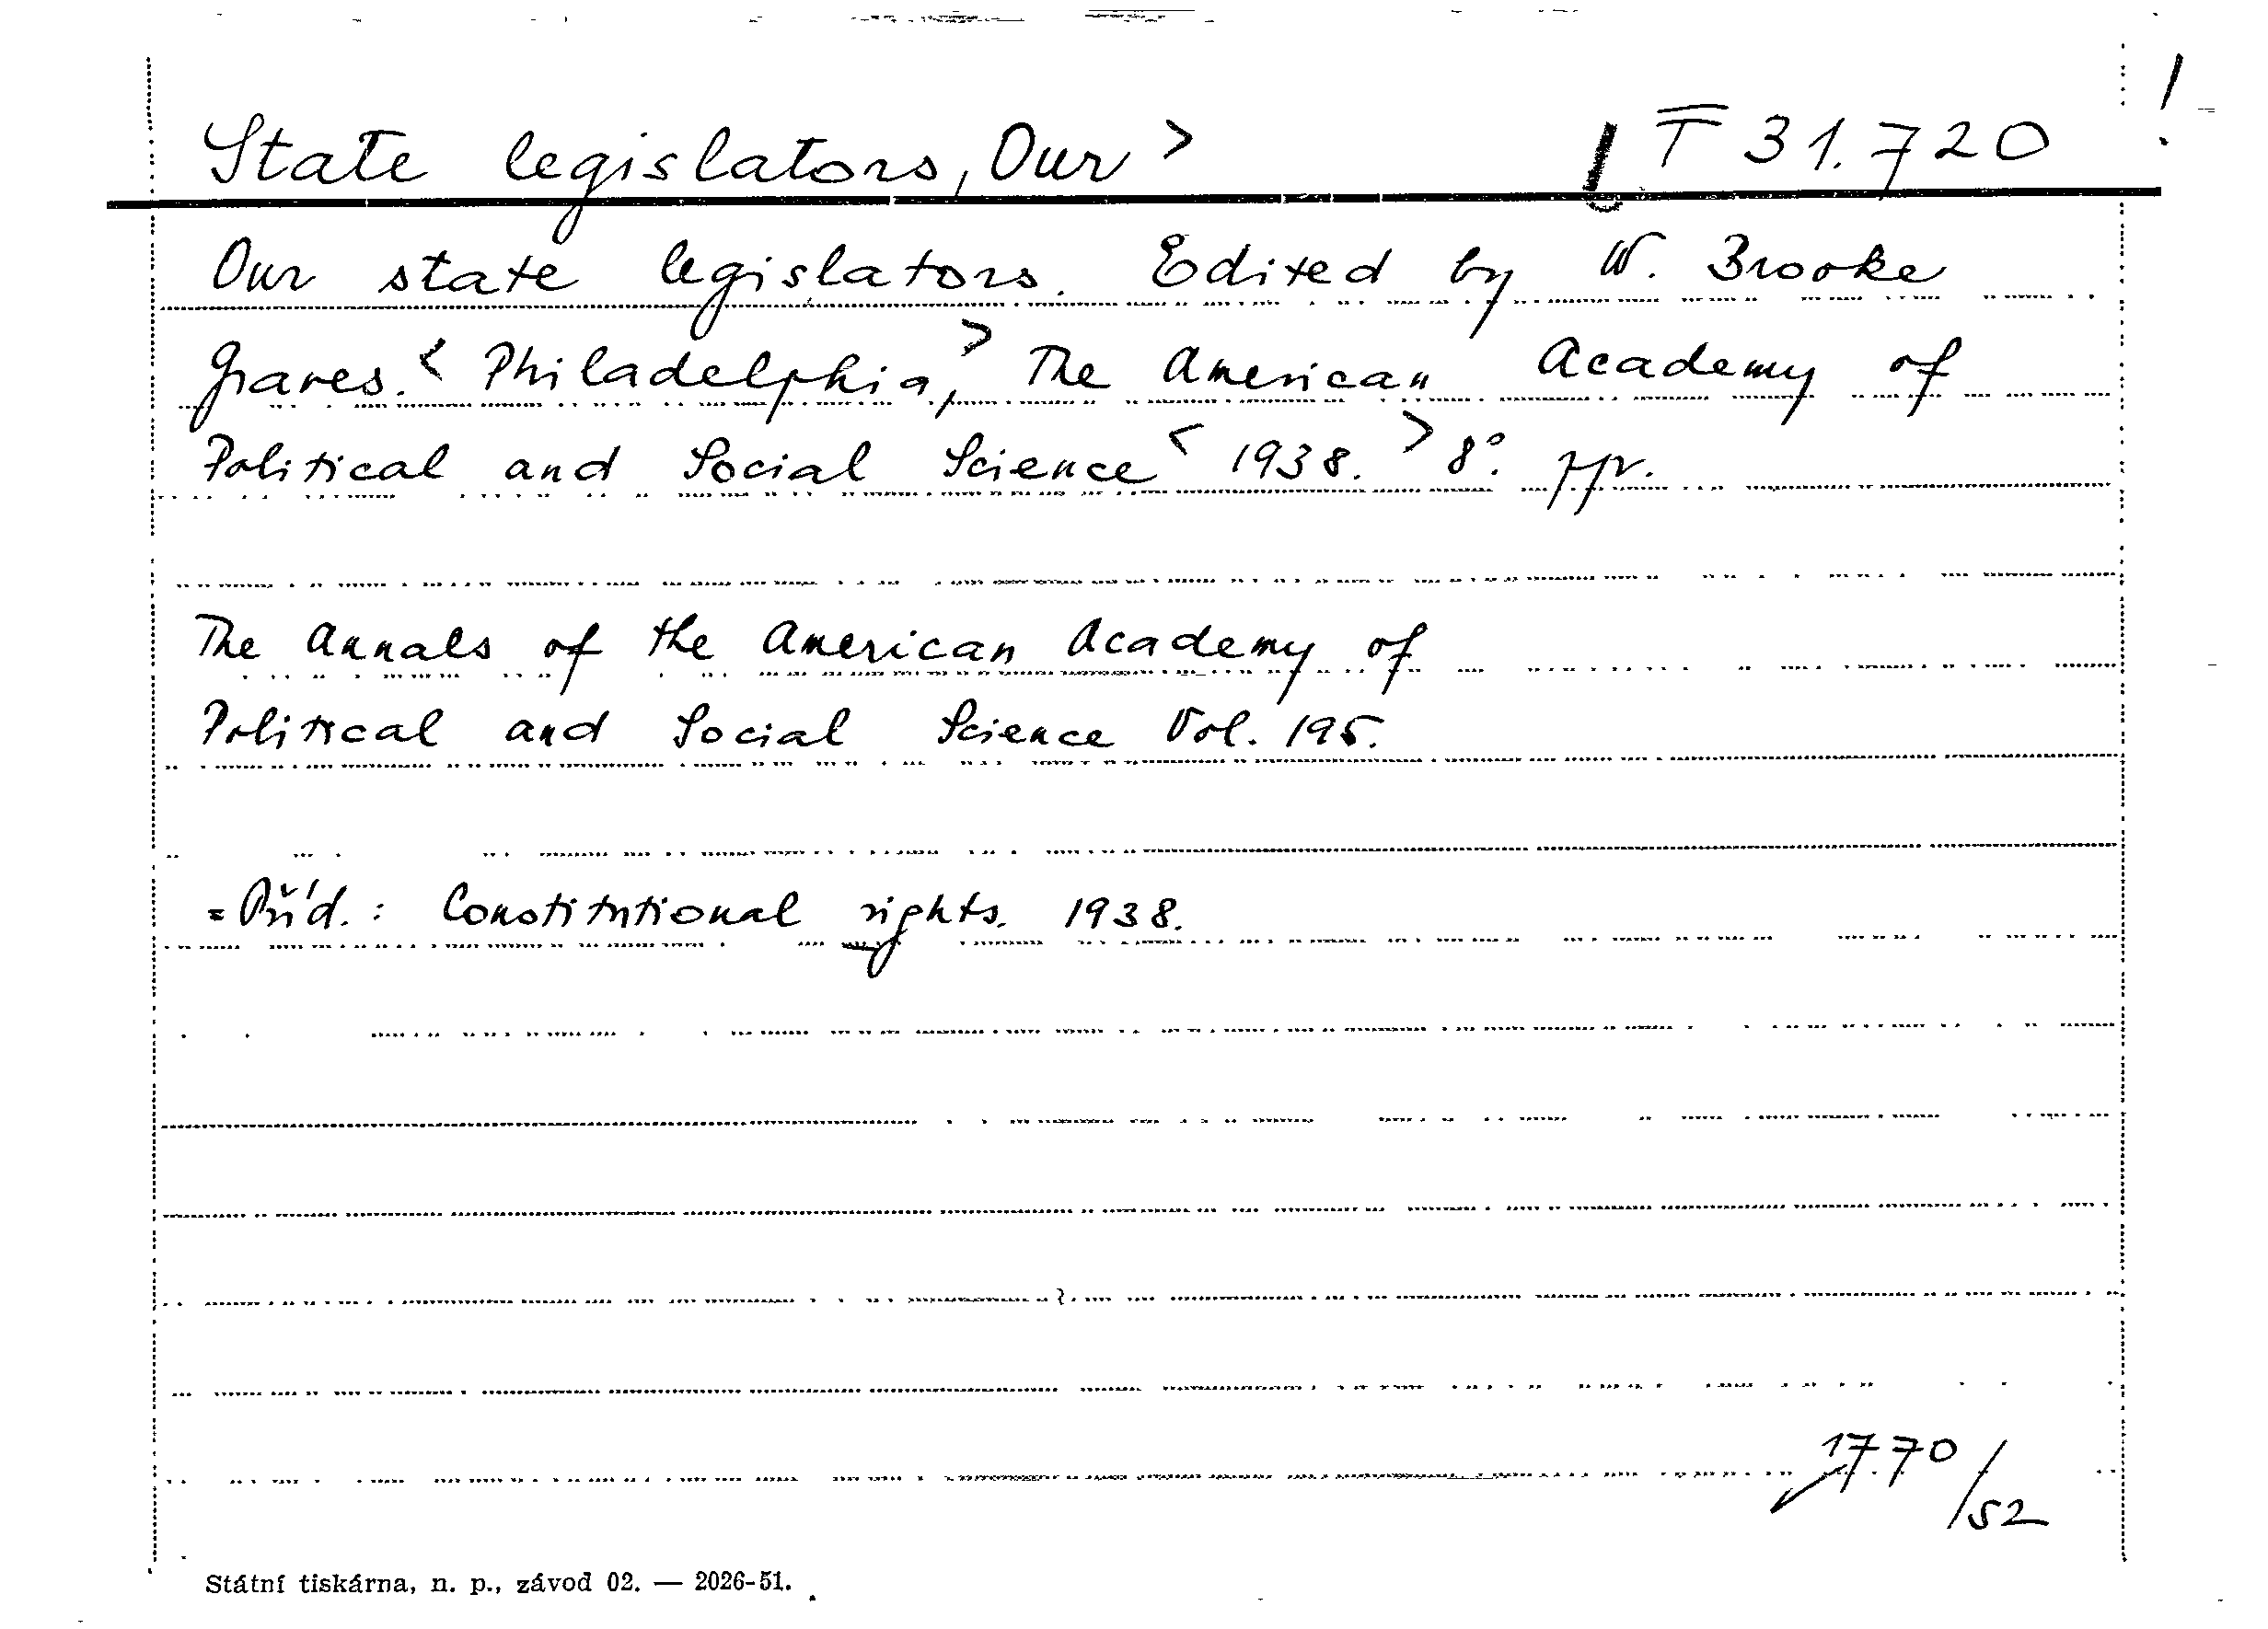 State legislators, Our > T 31.720 !
Our state legislators. Edited by W. Brooke
Graves. < Philadelphia, > The American Academy of
Political and Social Science < 1938. > 8°. ppv.
The Annals of the American Academy of
Political and Social Science Vol. 195.
= Příd.: Constitutional rights. 1938.
1770/52
Státní tiskárna, n. p., závod 02. — 2026-51.